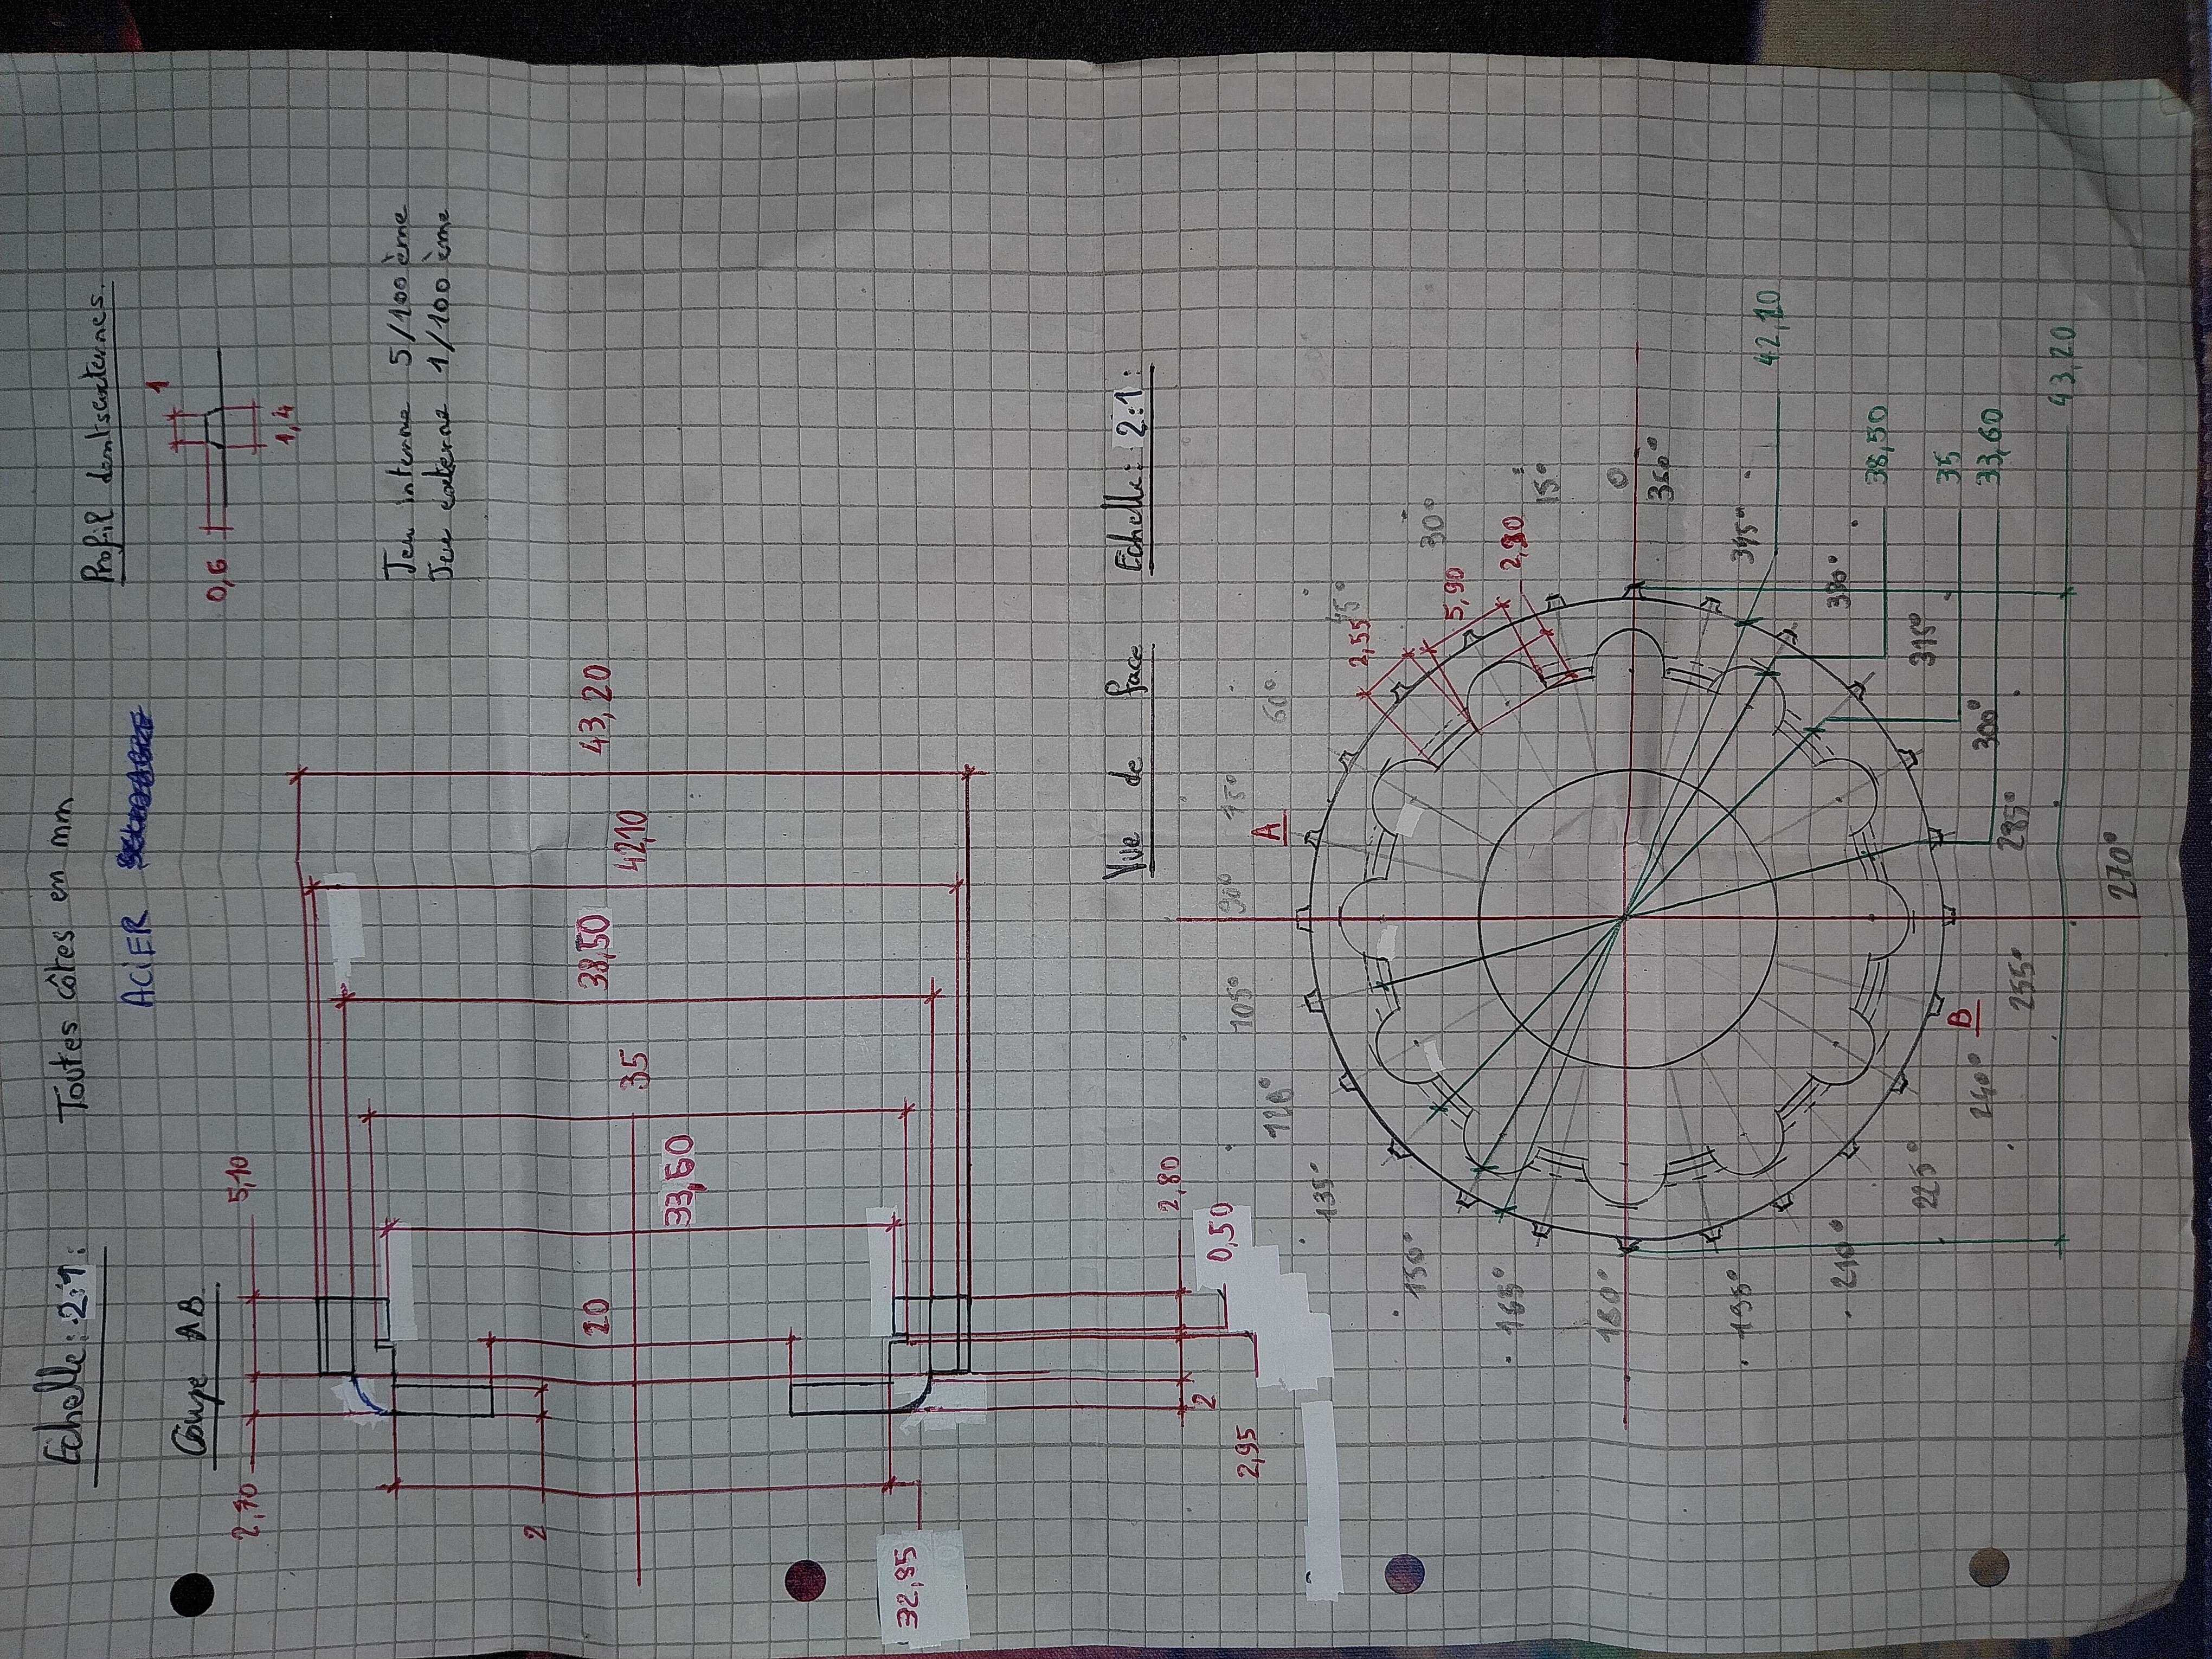 Echelle: 2:1:
Toutes côtes en mm
ACIER
Coupe AB
Profil dents externes.
1
0,6
1,4
Jeu interne 5/100 ème
Jeu externe 1/100 ème
2,10
5,10
43,20
42,10
38,50
35
33,60
20
2
32,85
2,80
0,50
2
2,95
Vue de face Echelle: 2:1:
A
B
2,55
5,90
2,80
0
360°
15°
30°
45°
60°
75°
90°
105°
120°
135°
150°
165°
180°
195°
210°
225°
240°
255°
270°
285°
300°
315°
330°
345°
42,10
38,50
35
33,60
43,20